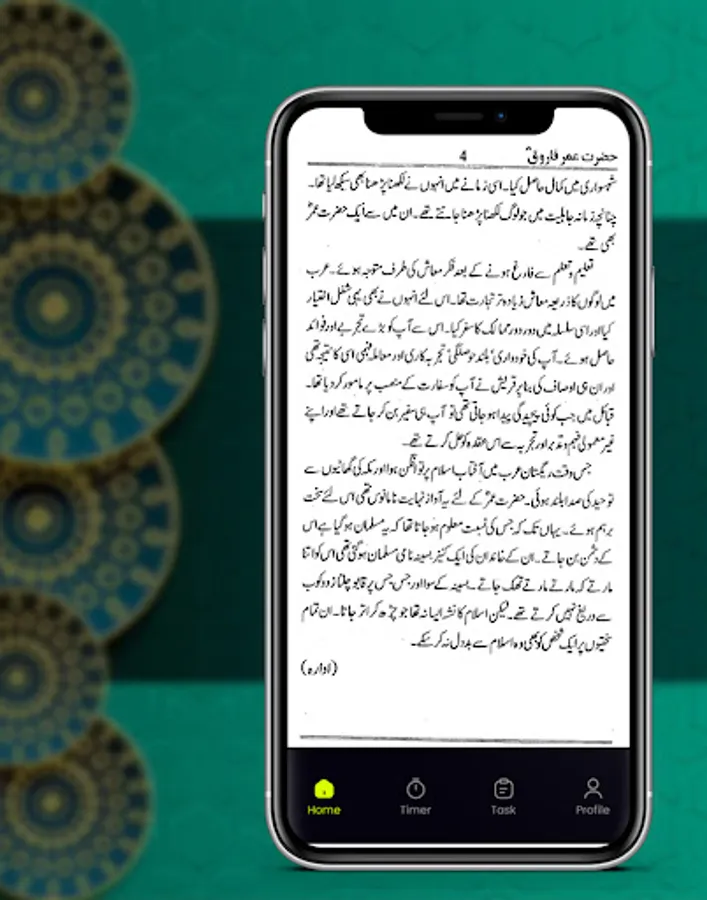 حضرت عمر فاروقؓ 4
شہسواری میں کمال حاصل کیا۔ اسی زمانے میں انہوں نے لکھنا پڑھنا بھی سیکھ لیا تھا۔
چنانچہ زمانہ جاہلیت میں جو لوگ لکھنا پڑھنا جانتے تھے۔ ان میں سے ایک حضرت عمرؓ
بھی تھے۔
تعلیم و تعلم سے فارغ ہونے کے بعد فکر معاش کی طرف متوجہ ہوئے۔ عرب
میں لوگوں کا ذریعہ معاش زیادہ تر تجارت تھا۔ اس لئے انہوں نے بھی یہی شغل اختیار
کیا اور اسی سلسلہ میں دور دور ممالک کا سفر کیا۔ اس سے آپ کو بڑے تجربے اور فوائد
حاصل ہوئے۔ آپ کی خودداری' بلند حوصلگی' تجربہ کاری اور معاملہ فہمی اسی کا نتیجہ تھی
اور ان ہی اوصاف کی بنا پر قریش نے آپ کو سفارت کے منصب پر مامور کر دیا تھا۔
قبائل میں جب کوئی پیچیدگی پیدا ہو جاتی تھی تو آپ ہی سفیر بن کر جاتے تھے اور اپنے
غیر معمولی فہم و تدبر اور تجربہ سے اس عقدہ کو حل کرتے تھے۔
جس وقت ریگستان عرب میں آفتاب اسلام پرتو افگن ہوا اور مکہ کی گھاٹیوں سے
توحید کی صدا بلند ہوئی۔ حضرت عمرؓ کے لئے یہ آواز نہایت نامانوس تھی اس لئے سخت
برہم ہوئے۔ یہاں تک کہ جس کی نسبت معلوم ہو جاتا تھا کہ یہ مسلمان ہو گیا ہے اس
کے دشمن بن جاتے۔ ان کے خاندان کی ایک کنیز بسینہ نامی مسلمان ہو گئی تھی اس کو اتنا
مارتے کہ مارتے مارتے تھک جاتے۔ بسینہ کے سوا اور جس جس پر قابو چلتا زدوکوب
سے دریغ نہیں کرتے تھے۔ لیکن اسلام کا نشہ ایسا نہ تھا جو چڑھ کر اتر جاتا۔ ان تمام
سختیوں پر ایک شخص کو بھی وہ اسلام سے بددل نہ کر سکے۔
(ادارہ)
Home Timer Task Profile